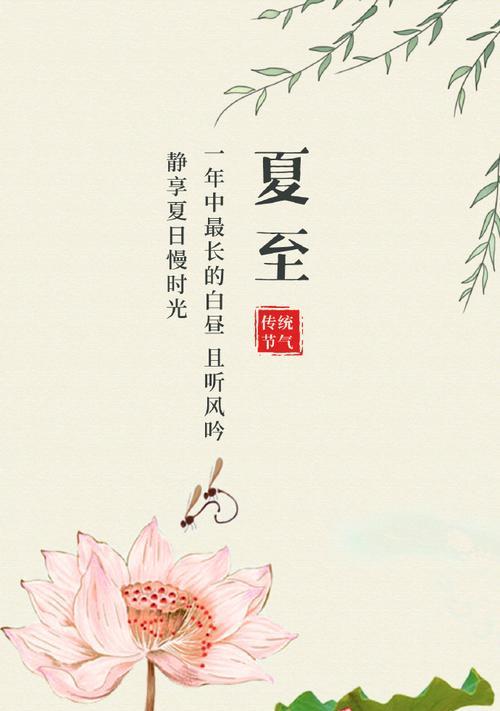 夏至
传统
节气
一年中最长的白昼 且听风吟
静享夏日慢时光